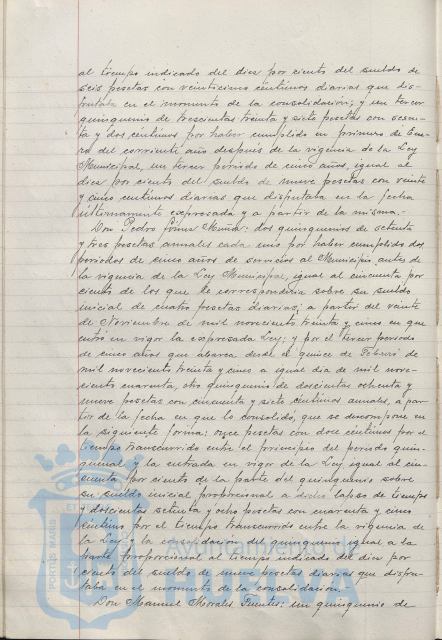 al tiempo indicado del diez por ciento del sueldo de
seis pesetas con veinticinco céntimos diarias que dis-
frutaba en el momento de la consolidación; y un tercer
quinquenio de trescientas treinta y siete pesetas con sesen-
ta y dos céntimos por haber cumplido en primero de Ene-
ro del corriente año después de la vigencia de la Ley
Municipal, un tercer periodo de cinco años, igual al
diez por ciento del sueldo de nueve pesetas con veinte
y cinco céntimos diarias que disfrutaba en la fecha
últimamente expresada y a partir de la misma.-
Don Pedro : dos quinquenios de setenta
y tres pesetas anuales cada uno por haber cumplido dos
periodos de cinco años de servicios al Municipio antes de
la vigencia de la Ley Municipal, igual al cincuenta por
ciento de los que le correspondería sobre su sueldo
inicial de cuatro pesetas diarias, a partir del veinte
de Noviembre de mil novecientos treinta y cinco en que
entró en vigor la expresada Ley; y por el tercer periodo
de cinco años que abarca desde el quince de Febrero de
mil novecientos treinta y cinco a igual dia de mil nove-
ciento cuarenta, otro quinquenio de doscientas ochenta y
nueve pesetas con cincuenta y siete céntimos anuales, a par-
tir de la fecha en que lo consolidó, que se descompone en
la siguiente forma: once pesetas con doce céntimos por el
tiempo transcurrido entre el principio del periodo quin-
quenal y la entrada en vigor de la Ley igual al cin-
cuenta por ciento de la parte del quinquenio sobre
su sueldo inicial proporcional a dicho lapso de tiempo
y doscientas setenta y ocho pesetas con cuarenta y cinco
céntimo por el tiempo transcurrido entre la vigencia de
la Ley y la consolidación del quinquenio igual a la
parte proporcional al tiempo indicado del diez por
ciento del sueldo de nueve pesetas diarias que disfru-
taba en el momento de la consolidación.-
Don Manuel Morales Fuentes: un quinquenio de
PORTUS MARIS